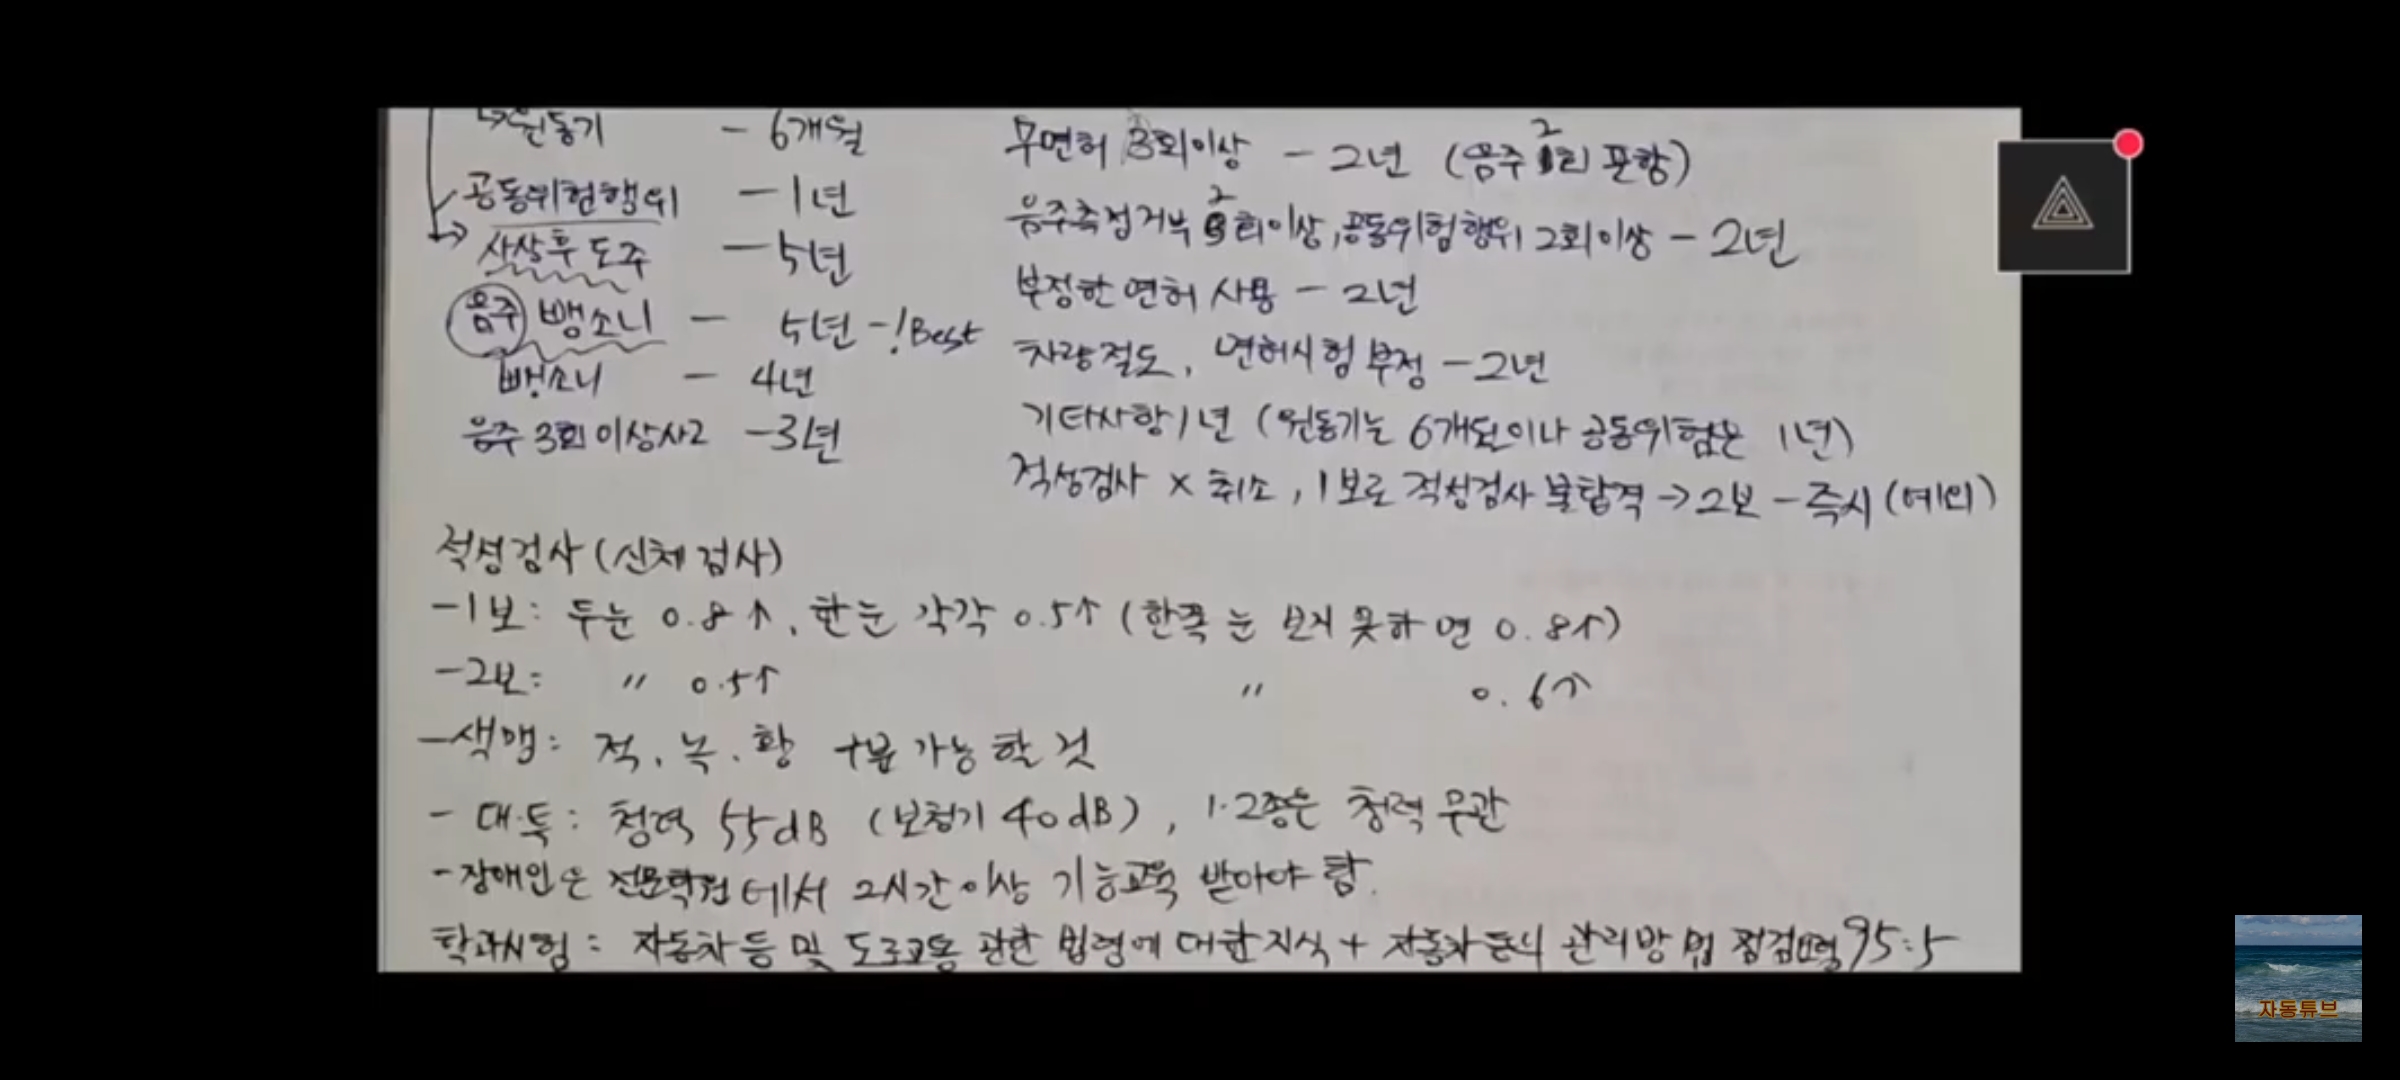 ↳원동기 - 6개월
공동위험행위 - 1년
→ 사상후 도주 - 5년
음주 뺑소니 - 5년 - ! Best
뺑소니 - 4년
음주 3회 이상사고 - 3년
무면허 3회이상 - 2년 (음주 2회 포함)
음주측정거부 2회이상, 공동위험행위 2회이상 - 2년
부정한 면허 사용 - 2년
차량절도, 면허시험 부정 - 2년
기타사항 1년 (원동기는 6개월이나 공동위험은 1년)
적성검사 x 취소, 1보로 적성검사 불합격 → 2보 - 즉시 (예외)
적성검사 (신체검사)
- 1보: 두눈 0.8↑, 한눈 각각 0.5↑ (한쪽 눈 보지 못하면 0.8↑)
- 2보: 〃 0.5↑ 〃 0.6↑
- 색맹: 적, 녹, 황 구분 가능할 것
- 대·특: 청력 55dB (보청기 40dB), 1·2종은 청력 무관
- 장애인은 전문학원에서 2시간이상 기능교육 받아야 함.
학과시험: 자동차 등 및 도로교통 관한 법령에 대한지식 + 자동차 등의 관리방법 점검요령 95:5
자동튜브